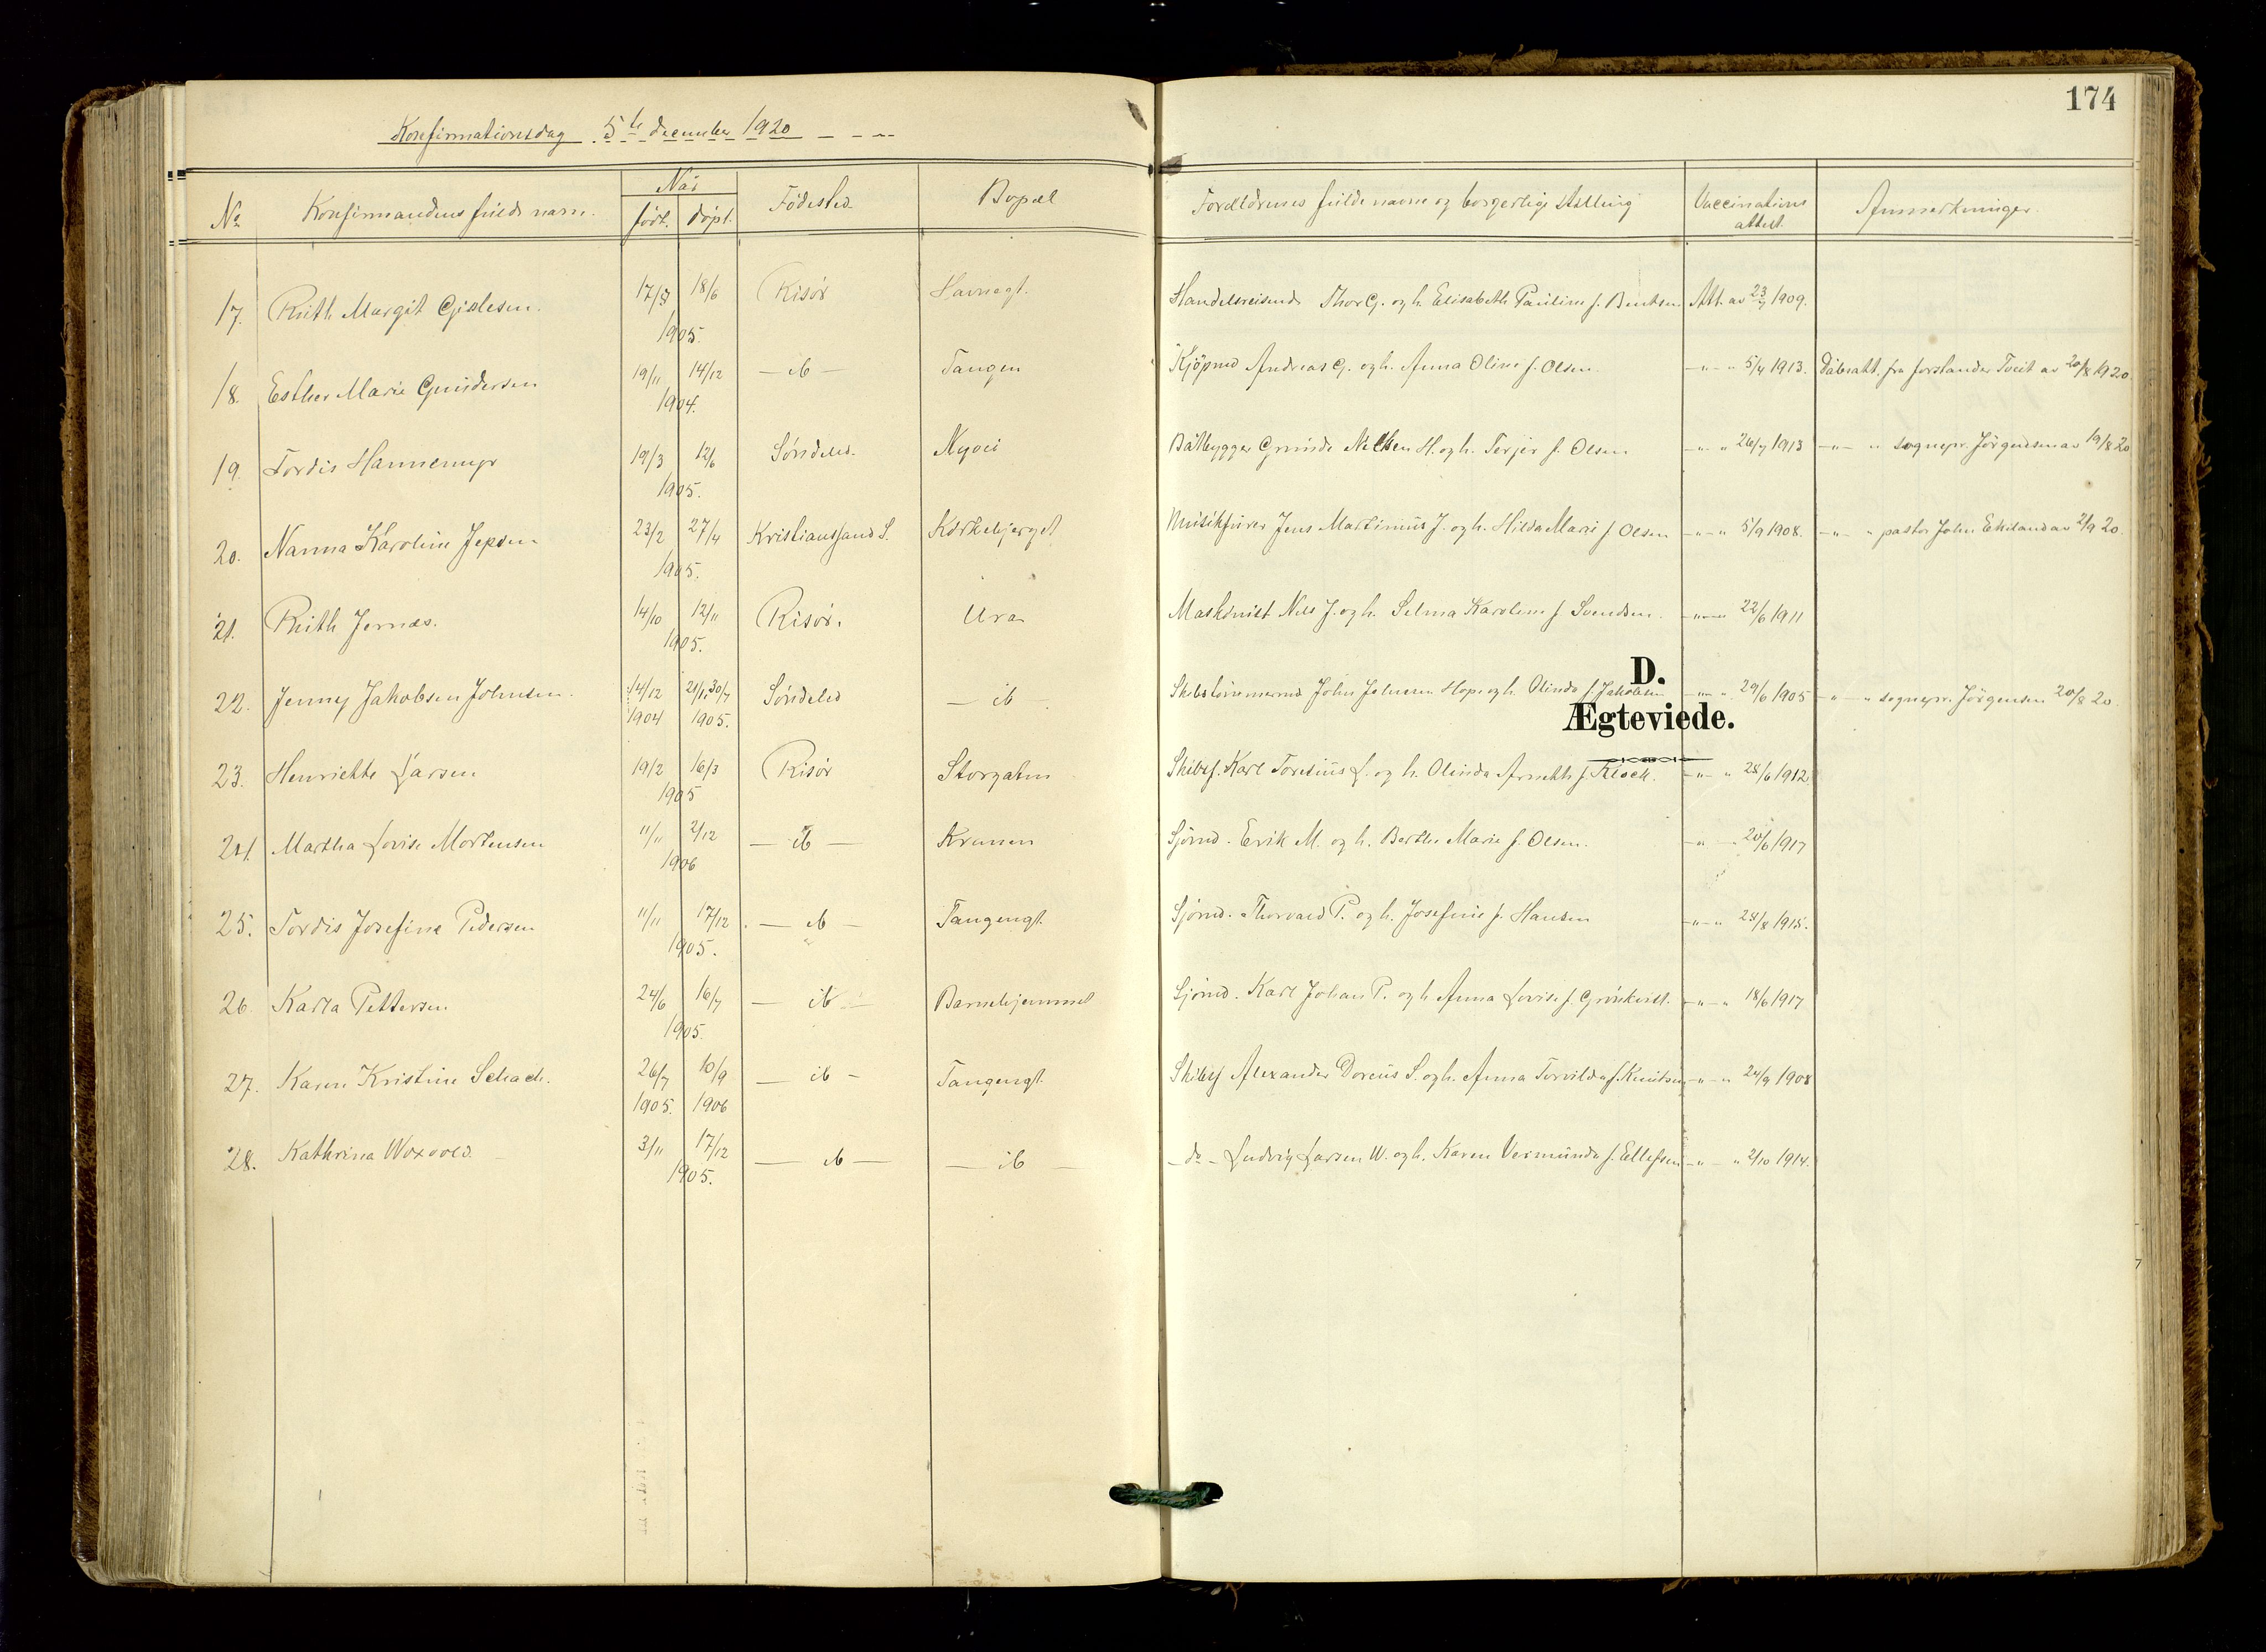 174
Konfirmationsdag 5te december 1920
No Konfirmandens fulde navn. Når født. døpt. Fødested Bopæl Forældrenes fulde navne og borgerlige stilling Vaccinations attest. Anmerkninger.
17. Ruth Margit Gjalesen. 17/3 18/6 1905. Risør Havnegt. Handelsreisende Thor G. og h. Elisabeth Pauline f. Bentsen Att. av 23/9 1909.
18. Esther Marie Gundersen 19/11 14/12 1904. — ib — Tangen Kjøpmd Andreas G. og h. Anna Oline f. Olsen. —„— „ 5/4 1913. Dåbsatt. fra forstander Tveit av 20/8 1920.
19. Tordis Hannemyr 19/3 12/6 1905. Søndeled Nyvei Båtbygger Gunde Nilsen H. og h. Terjer f. Olsen —„— „ 26/7 1913 —„— „ sognepr. Jørgensen av 19/8 20
20. Nanna Karoline Jepsen 23/2 27/4 1905. Kristianssand S. Kirkebjerget Musikfører Jens Martinius J. og h. Hilda Marie f. Olsen —„— „ 5/9 1908. —„— „ pastor John Ekeland av 2/9 20.
21. Ruth Jernæs. 14/10 12/11 1905. Risør. Ura Maskinist Nils J. og h. Selma Karoline f. Svendsen. —„— 22/6 1911
D.
22. Jenny Jakobsen Johnsen. 14/12 1904 21/1, 30/7 1905. Søndeled — ib — Skibstømmermd John Johnsen Hope og h. Olinda f. Jakobsen —„— „ 29/6 1905 „ — „ sognepr. Jørgensen 20/8 20.
Ægteviede.
23. Henriette Larsen 19/2 16/3 1905 Risør Storgaten Skibsf. Karl Toresius L. og h. Olinda Arnette f. Klock. —„— „ 28/6 1912
24. Martha Lovise Mortensen 11/11 2/12 1906 — ib — Kranen Sjømd. Erik M. og h. Berthe Marie f. Olsen. —„— 20/6 1917
25. Tordis Josefine Pedersen 11/11 17/12 1905. — ib — Tangengt. Sjømd. Thorvald P. og h. Josefine f. Hansen —„— „ 24/8 1915.
26. Karla Pettersen 24/6 16/7 1905. — ib — Barnehjemmet Sjømd. Karl Johan P. og h. Anna Lovise f. Grönkvist. —„— „ 18/6 1917
27. Karen Kristine Schach. 26/7 1905. 10/9 1906 — ib — Tangengt. Skibsf Alexander Doreus S. og h. Anna Torvilda f. Knutsen —„— „ 24/9 1908
28. Kathrina Woxvold. 3/11 17/12 1905. — ib — — ib — — do — Ludvig Larsen W. og h. Karen Vermunda f. Ellefsen —„— „ 2/10 1914.